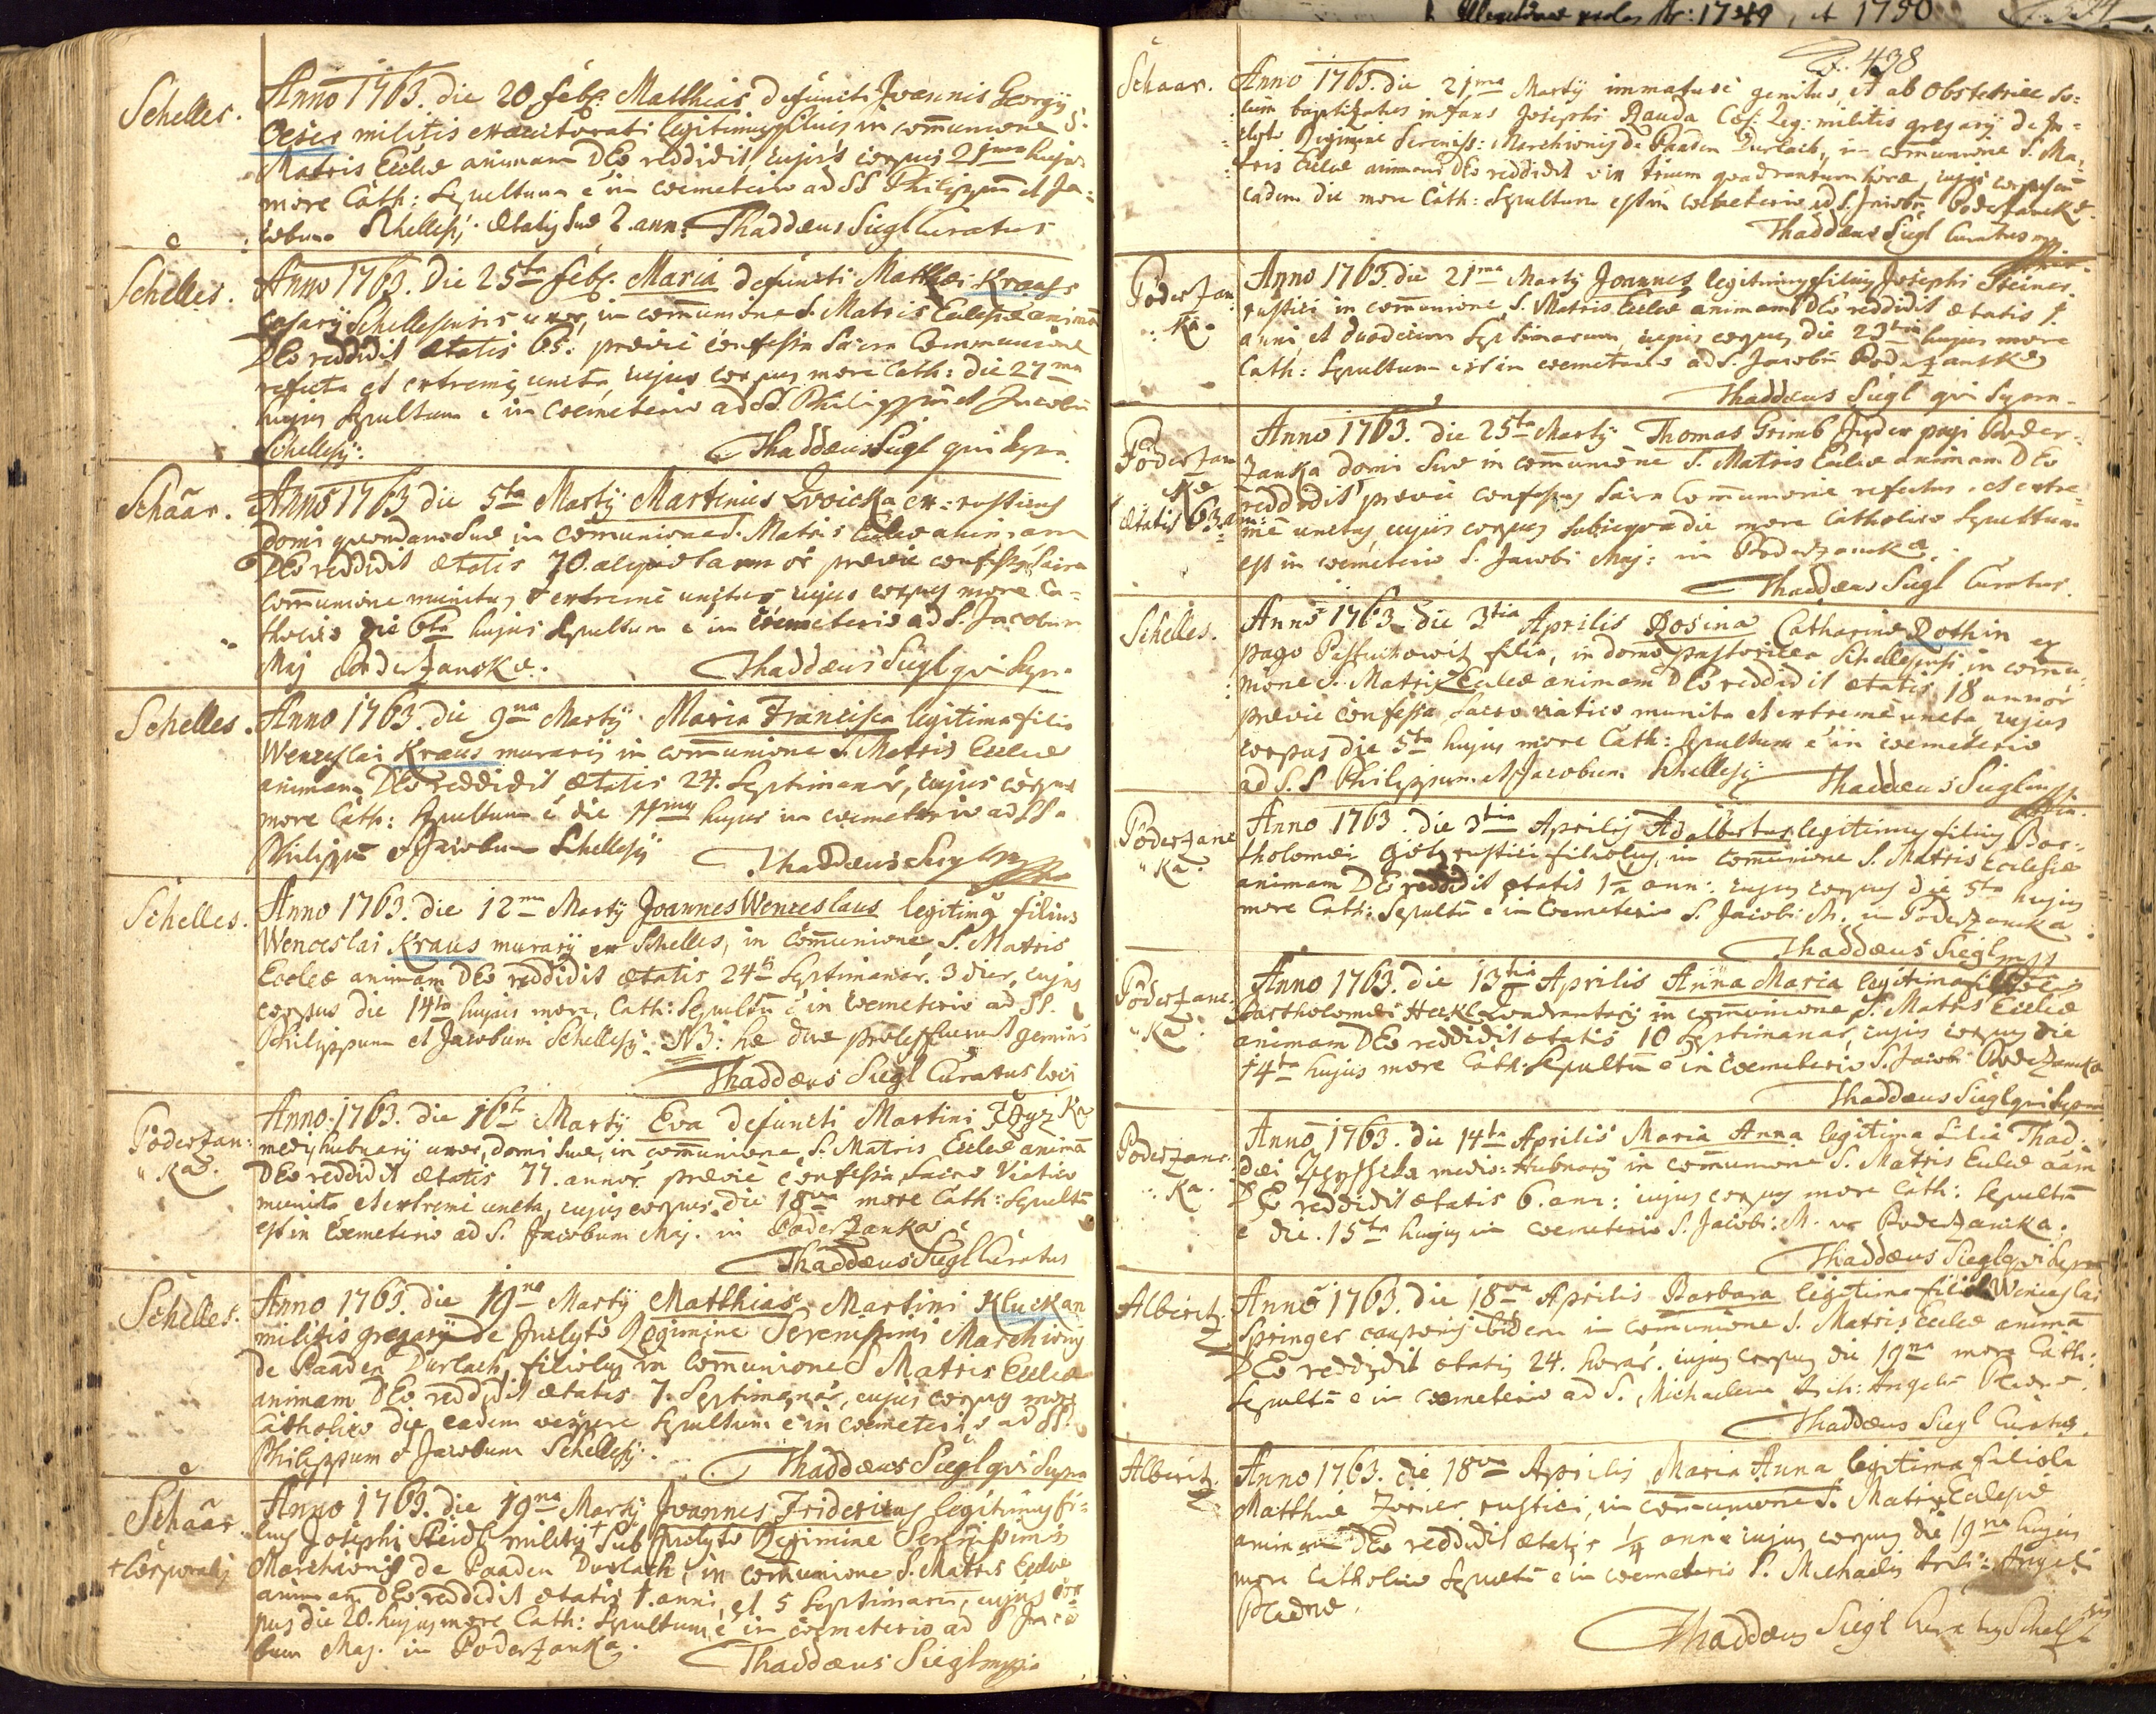 Schelles.
Anno 1763. die 20 Feb: Matthias defuncti Joannis Georgÿ
militis exauctorati legitimus filius in com̄unione S.
Matris Eccliæ animam DEo reddidit, cujus corpus 21ma hujus
more Cath: Sepultum e in coemeterio ad SS Philippum et Ja=
cobum Schellesÿ. Ætatis suæ 2. ann: Thaddæus Siegl Curatus
Schelles.
Anno 1763. Die 25ta Feb: Maria defuncti Matthæi Kraus
casarÿ Schellesensis uxor, in com̄unione S. Matris Ecclesiæ animā
DEo reddidit Ætatis 65. prævie confessa Sacra Communione
refecta et extremè uncta, cujus corpus more Cath: die 27ma
hujus Sepultum e in Coemeterio ad SS. Philippum et Jacobū
Schellesÿ. Thaddæus Siegl qui supra
Schāar.
Anno 1763 die 5ta Martÿ Martinus ex=rusticus
domi quondam suæ in com̄unione S. Matris Eccliæ animam
DEo reddidit ætatis 70. annor prævie confessus Sacra
communione munitus et extremè unctus cujus corpus more Ca=
tholico die 6ta hujus Sepultum e in Coemeterio ad S. Jacobum
Maj Poderzanckæ. Thaddæus Siegl qui supra
Schelles.
Anno 1763. die 9na Martÿ Maria Francisca legitima filia
Wenzeslai Kraus murarÿ in com̄unione S. Matris Eccliæ
animam DEo reddidit ætatis 24. Septimanar, cujus corpus
more Cath: Sepultum e die 11ma hujus in coemeterio ad SS.
Philippū et Jacobum Schellesÿ Thaddæus Siegl
Schelles.
Anno 1763. die 12ma Martÿ Joannes Wenceslaus legitimq filius
Wenceslai Kraus murarÿ ex Schelles, in com̄unione S. Matris
Eccleæ animam DEo reddidit ætatis 24 Septimanar. 3 dier, cujus
corpus die 14ta hujus more Cath: Sepultū e in coemeterio ad SS.
Philippum et Jacobum Schellesÿ. NB: hæ duæ proles fuerunt gemini
Thaddæus Siegl Curatus loci
Poderzan:
"ka.
Anno 1763. die 16ta Martÿ Eva defuncti Martini
medÿ hubnarÿ uxor, domi suæ, in com̄unione S. Matris Eccliæ animā
DEo reddidit ætatis 77. annor. prævie confessa Sacro Viatico
munita et extremè uncta, cujus corpus die 18va more Cath: Sepultū
est in Coemeterio ad S. Jacobum Maj. in Poderzanka.
Thaddæus Siegl Curatus
Schelles.
Anno 1763. die 19na Martÿ Matthias Martini Kluckan
militis gregarÿ de Inclyto Regimine Serenissimi Marchionis
de Paaden Durlach, filiolus in com̄unione S Matris Eccliæ
animam DEo reddidit ætatis 7. Septimanar, cujus corpus more
Catholico die eadem vespere Sepultum e in coemeterio ad SS.
Philippum et Jacobum Schellesÿ. Thaddæus Siegl qui Supra
Schāar
+ Corporalis
Anno 1763. die 19na Martÿ Joannes Fridericus legitimus fi=
lius Josephi Steidl militis + Sub Inclyto Regimine Serenissimis
Marchionis de Paaden Durlach, in com̄unione S. Matris Eccliæ
animam DEo reddidit ætatis 1. anni, et 5 Septimarū, cujus cor=
pus die 20. hujus more Cath: Sepultum e in coemeterio ad S Jaco
bum Maj. in Poderzanka. Thaddæus Siegl
1749, et 1750
438
Schaar.
Anno 1763. die 21ma Martÿ immaturè genitus, et ab Obstetrice so=
lum baptizatus infans Josephi Rauda Cæs: Reg: militis gregarÿ de In=
clyto Regimine Sereniss: Marchionis de Paaden Durlach, in com̄unione S. Ma=
tris Eccliæ animam DEo reddidit in trium quadrantum horæ, cujus corpus
eadem die more Cath: Sepultum est in coemeterio ad S. Jacobū Poderzanckæ.
Thaddæus Siegl Curatus
Poderzan:
"ka.
Anno 1763 die 21ma Martÿ Joannes legitimus filius Josephi Steiner
rustici in com̄unione, S. Matris Eccliæ animam DEo reddidit ætatis 1.
anni et duodecim Septimarum, cujus corpus die 23tia hujus more
Cath: Sepultum est in coemeterio ad S. Jacobū Poderzanskæ
Thaddæus Siegl qui Supra
Poderzan
ka
ætatis 63. an:
Anno 1763. die 25ta Martÿ Thomas Grimb Judex pagi Poder=
zanka domi suæ in com̄unione S. Matris Eccliæ animam DEo
reddidit prævie confessus Sacra Communione refectus, et extre=
mè unctus, cujus corpus subsequa die more Catholico Sepultum
est in coemeterio S. Jacobi Maj: in Poderzanckæ.
Thaddæus Siegl Curatus.
Schelles.
Anno 1763. die 3tia Aprilis Rosina Catharinæ Rothin ex
pago filia, in domo pastoritia Schellesensi, in com̄u=
nione S. Matris Eccliæ animam DEo reddidit ætatis 18 annor
prævie confessa, Sacro viatico munita et extremè uncta, cujus
corpus die 5ta hujus more Cath: Sepultum e in coemeterio
ad S.S Philippum et Jacobum Schellesÿ Thaddæus Siegl
Poderzanc
"ka.
Anno 1763. die 3tia Aprilis Adalbertus legitimus filius Bar=
tholomæi Götz rustici filiolus, in com̄unione S. Matris Ecclesiæ
animam DEo reddidit ætatis 1 ann: cujus corpus die 5ta hujus
more Cath: Sepultū e in Coemeterio S. Jacobi M. in Poderzancka.
Thaddæus Siegl
Poderzanc.
"ka.
Anno 1763. die 13tia Aprilis Anna Maria legitima
Bartholomæi Heckl Quadrantarÿ in com̄unione S. Matris Eccliæ
animam DEo reddidit ætatis 10 Septimanar, cujus corpus die
14ta hujus more Cath: Sepultū e in Coemeterio S. Jacobi Poderzancka
Thaddæus Siegl qui Supra
Poderzanc.
"ka.
Anno 1763. die 14ta Aprilis Maria Anna legitima filia Thad=
dæi medio=Hubnarÿ in com̄unione S. Matris Eccliæ aām
DEo reddidit ætatis 6. ann: cujus corpus more Cath: Sepultū
e die. 15ta hujus in coemeterio S. Jacobi: M. in Poderzancka.
Thaddæus Siegl qui Supra
Alberitz
Anno 1763. die 18va Aprilis Barbara legitima filiola Wenceslai
Springer cauponis ibidem in com̄unione S. Matris Eccliæ animā
DEo reddidit ætatis 24. horar. cujus corpus die 19na more Cath:
Sepultū e in coemeterio ad S. Michaelem Arch: Angelū
Thaddæus Siegl Curatus.
Alberitz
Anno 1763. die 18va Aprilis Maria Anna legitima filiola
Matthiæ rustici, in com̄unione S. Matris Ecclesiæ
animam DEo reddidit ætatis 1/4 anni cujus corpus die 19na hujus
more Catholico Sepultū e in coemeterio S. Michaelis Arch: Angeli
Thaddæus Siegl